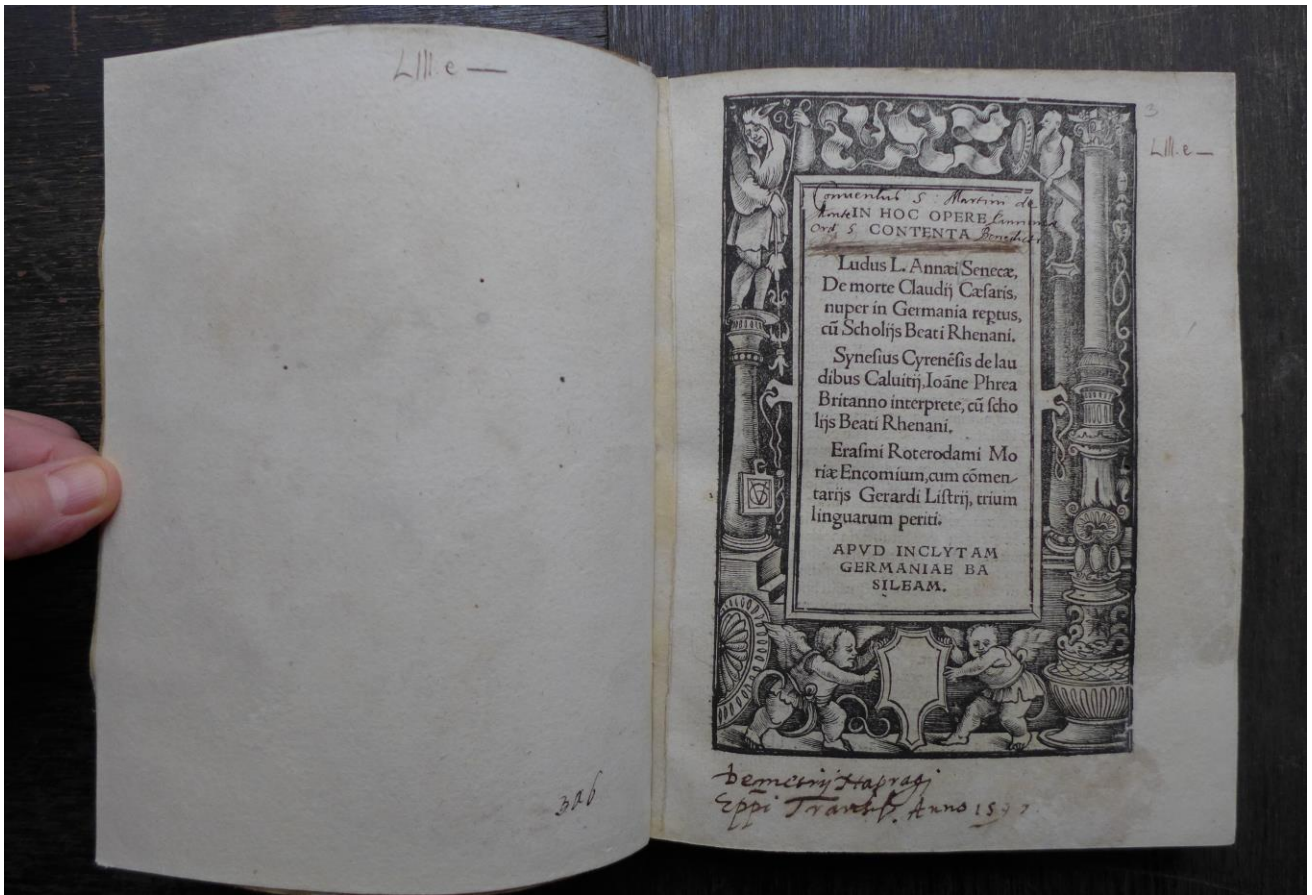 LIII. e —
326
3
LIII. e —
Conventus S. Martini de
IN HOC OPERE
Ord. S. CONTENTA Benedicti
Ludus L. Annæi Senecæ,
De morte Claudij Cæſaris,
nuper in Germania reptus,
cū Scholijs Beati Rhenani.
Syneſius Cyrenēſis de lau
dibus Caluitij, Ioāne Phrea
Britanno interprete, cū ſcho
lijs Beati Rhenani.
Eraſmi Roterodami Mo
riæ Encomium, cum cōmen
tarijs Gerardi Liſtrij, trium
linguarum periti.
APVD INCLYTAM
GERMANIAE BA
SILEAM.
Demetrij Napragi
Eppi Transs. Anno 1597